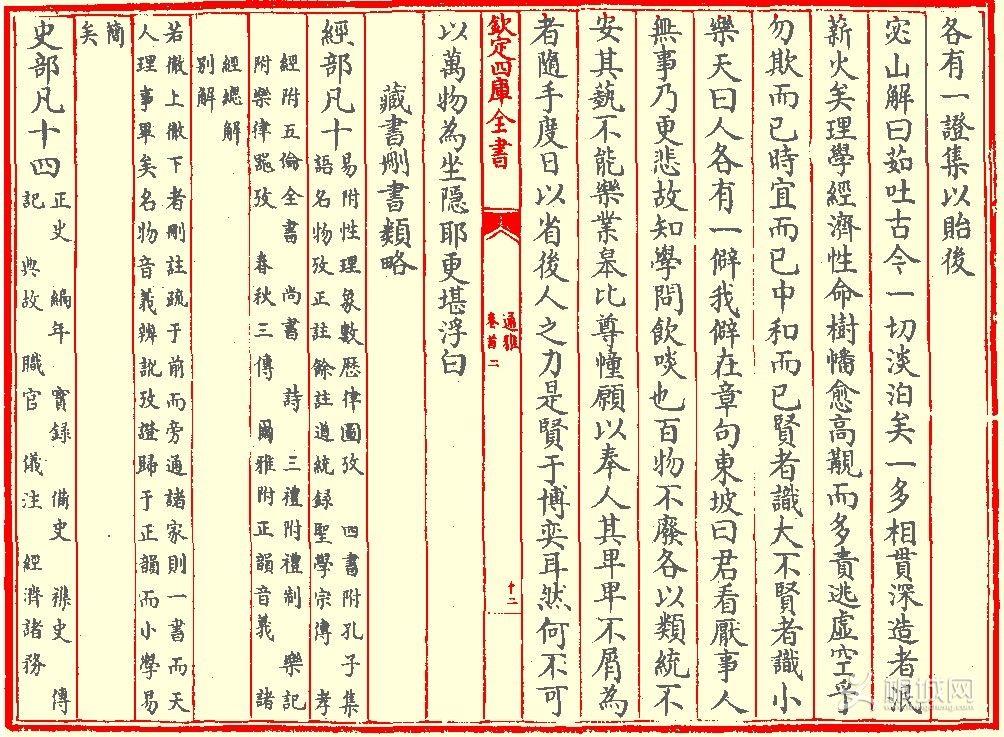 各有一證集以貽後
宓山解曰茹吐古今一切淡泊矣一多相貫深造者泯
薪火矣理學經濟性命樹幡愈高覯而多責逃虛空乎
勿欺而已時宜而已中和而已賢者識大不賢者識小
樂天曰人各有一僻我僻在章句東坡曰君看厭事人
無事乃更悲故知學問飲啖也百物不廢各以類統不
安其蓺不能樂業皋比尊幢願以奉人其卑卑不屑為
者隨手度日以省後人之力是賢于博奕耳然何不可
欽定四庫全書
通雅
卷首二
十二
以萬物為坐隱耶更堪浮白
藏書刪書類略
經部凡十
易附性理象數歷律圖攷 四書附孔子集
語名物攷正註餘註道統録聖學宗傳 孝
經附五倫全書 尚書 詩 三禮附禮制 樂記
附樂律器攷 春秋三傳 爾雅附正韻音義 諸
經總解
别解
若徹上徹下者刪註疏于前而旁通諸家則一書而天
人理事畢矣名物音義辨説攷證歸于正韻而小學易
簡
矣
史部凡十四
正史 編年 實録 備史 襍史 傳
記 典故 職官 儀注 經濟諸務